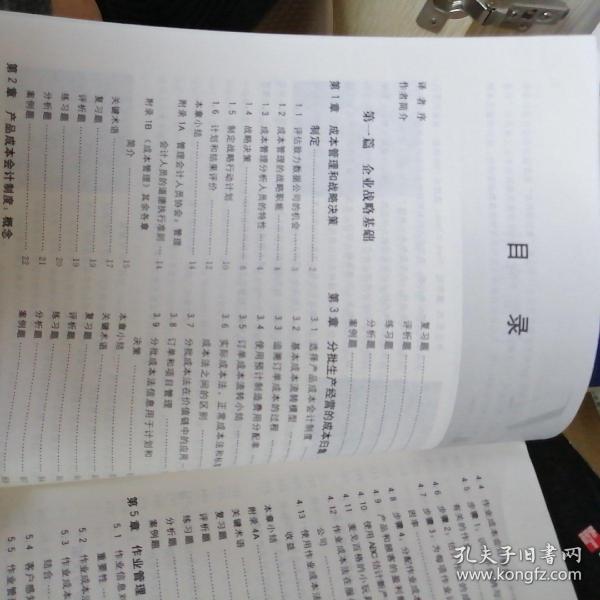 目 录
译者序
作者简介
第一篇 企业战略基础
第1章 成本管理和战略决策
制定 2
1.1 评估致力数据公司的机会 3
1.2 成本管理的战略职能 4
1.3 成本管理分析人员的特性 6
1.4 战略决策 8
1.5 制定战略行动计划 10
1.6 计划和结果评价 12
本章小结 14
附录1A 管理会计人员协会:管理
会计人员的道德执行准则 14
附录1B 《成本管理》其余各章
简介 15
关键术语 17
复习题 19
评析题 19
练习题 20
分析题 21
案例题 22
第2章 产品成本会计制度:概念
复习题
评析题
练习题
分析题
案例题
第3章 分批生产经营的成本归
3.1 选择产品成本会计制度
3.2 基本成本流转模型
3.3 追溯订单成本的过程
3.4 使用预计制造费用分配率
3.5 订单成本流转小结
3.6 实际成本法、正常成本法和
成本法之间的区别
3.7 分批成本法在价值链中的应用
3.8 订单和项目管理
3.9 分批成本法信息用于计划和
决策
本章小结
关键术语
复习题
评析题
练习题
分析题
案例题
4.4 作业成本
4.5 步骤1:
4.6 步骤2:
4.7 步骤3:为每项作业
因率
4.8 步骤4:分配作业成
4.9 产品和顾客的盈利
4.10 使用ABC估计新产
4.11 麦戈百事的小玩
4.12 作业成本法在服
公司
4.13 使用作业成本
收益
本章小结
附录4A
关键术语
复习题
评析题
练习题
分析题
案例题
第5章 作业管理
5.1 作业信息
重要性
5.2 作业成本
5.3 作业成本
结合
5.4 客户感
5.5 作业管
孔夫子旧书网
www.kongfz.com